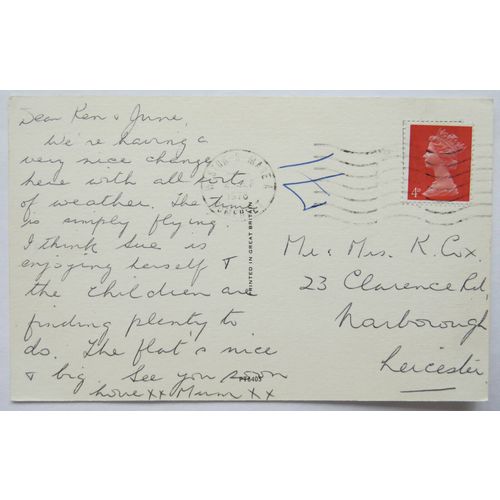 Dear Ken & June,
We're having a
very nice change
here with all sorts
of weather. The time
is simply flying.
I think Sue is
enjoying herself &
the children are
finding plenty to
do. The flat's nice
& big. See you soon
love xx Mum xx
PRINTED IN GREAT BRITAIN
4d
Mr & Mrs. K. Cox.
23 Clarence Rd,
Narborough
Leicester